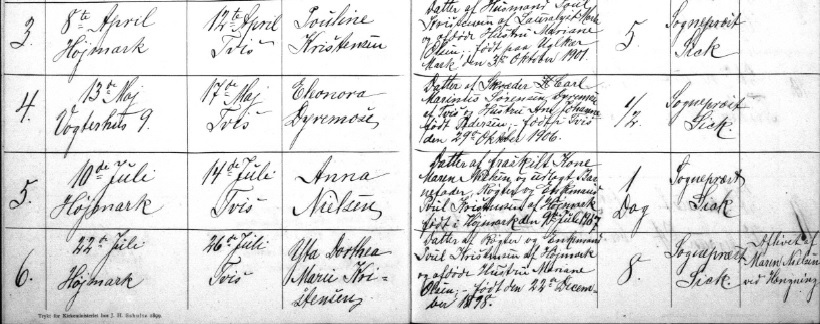 3.
8de April
Højmark
12te April
Tvis
Pouline
Kristensen
Datter af Husmand Poul
Kristensen af
og afdøde Hustru Mariane
Olsen; født paa
Mark, den 3die Oktober 1901.
5
Sognepræst
Sick
4.
13de Maj
Vogterhus 9.
17de Maj
Tvis
Eleonora
Dyremose
Datter af Skræder Carl
Marinus Sørensen Dyremose
af Tvis og Hustru Ane Johanne
født Pedersen; født i Tvis
den 29de Oktober 1906.
1/2
Sognepræst
Sick.
5.
10de Juli
Højmark
14de Juli
Tvis
Anna
Nielsen
Datter af fraskilt Kone
Maren Nielsen og udlagt Bar-
nefader, Røgter og Enkemand
Poul Kristensen af Højmark
født i Højmark den 9de Juli 1907.
1
Dag
Sognepræst
Sick
6.
22de Juli
Højmark
26de Juli
Tvis
Dorthea
Marie Kri-
stensen
Datter af Røgter og Enkemand
Poul Kristensen af Højmark
og afdøde Hustru Mariane
Olsen; - født den 22de Decem-
ber 1898.
8.
Sognepræst
Sick.
Aflivet af
Maren Nielsen
ved Hængning
Trykt for Kirkeministeriet hos J. H. Schultz 1899.